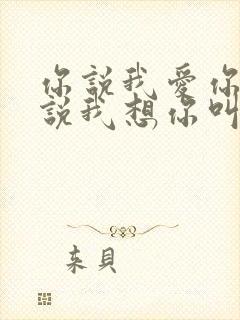 你說我愛你
說我想你叫
来貝